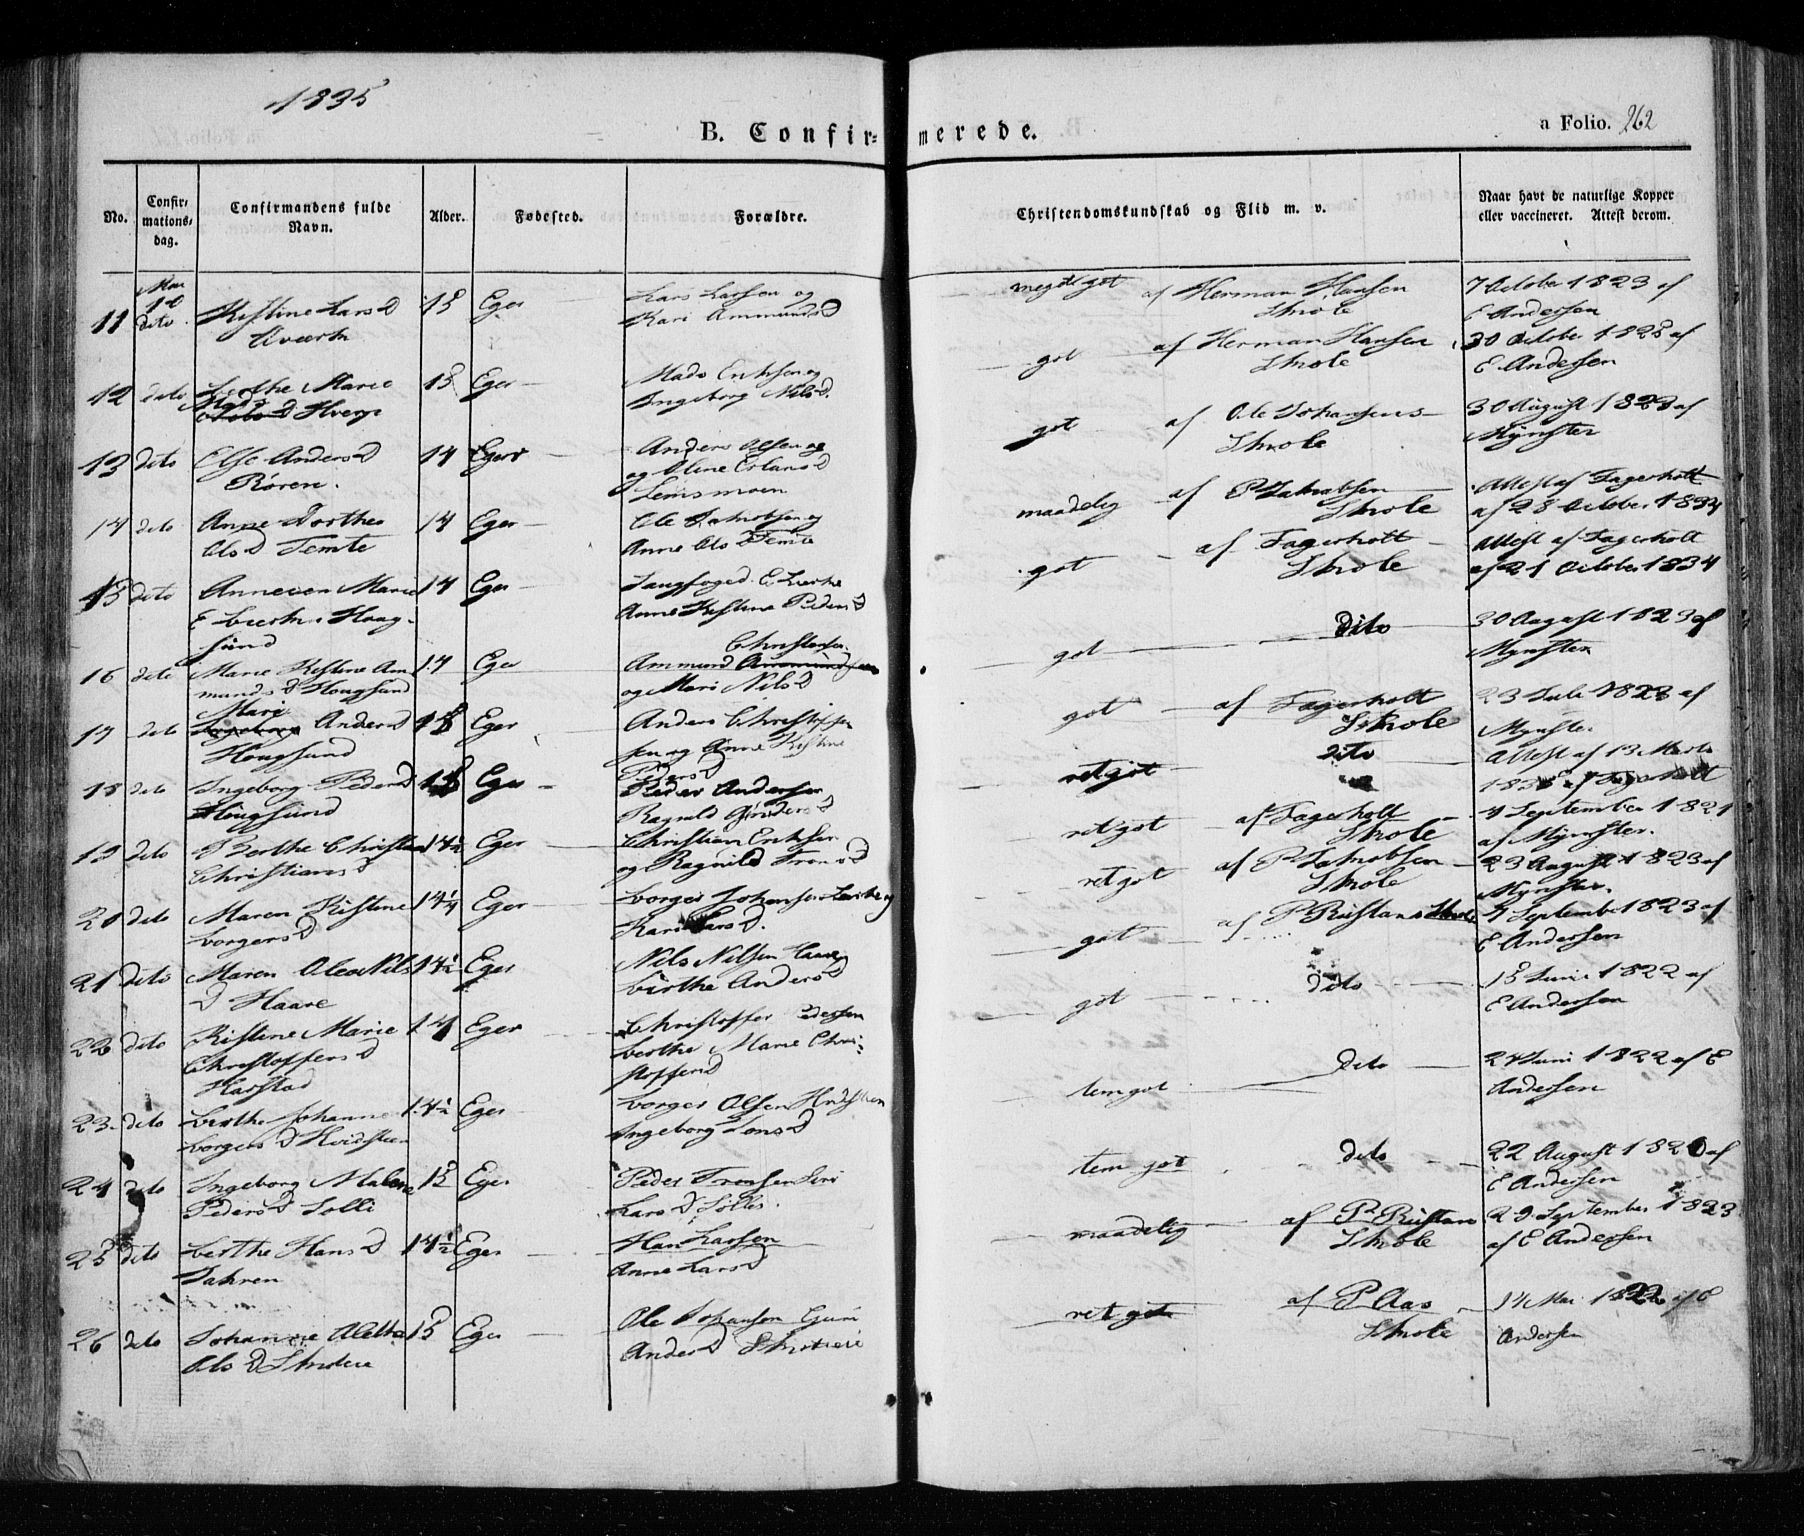 1835
B. Confir-merede.
a Folio. 262
No.
Confirmations-dag.
Confirmandens fulde Navn.
Alder.
Fødested.
Forældre.
Christendomskundskab og Flid m. v.
Naar havt de naturlige Kopper eller vaccineret. Attest derom.
11 dito Kistine Lars D 15 Eger Lars Larsen og meget got af Herman Hansen 7 October 1823 af
Kari Ammunds D Skole E Andersen
12 dito Berthe Marie 15 Eger Mads Eriksen og got af Herman Hansen 30 October 1825 af
Mads D Ingeborg Nils D. Skole E. Andersen
13 dito Else Anders D 14 Eger Anders Olsen og got af Ole Johansens 30 August 1823 af
Røren. og Oline Erlans D Skole Mynster
14 dito Anne Dorthea 14 Eger Ole Jakobsen og maadelig af P Jakobsen Attest af Fagerholt
Ols D Temte Anne Ols D Temte Skole af 28 October 1834
15 dito Marie 14 Eger got af Fagerholt Attest af Fagerholt
Anne Kistine Peders D Skole af 21 October 1834
16 dito Marie Kistine Am 14 Eger Ammund Christensen got dito 30 August 1823 af
munds D Hougsund og Mari Nils D Mynster
17 dito Mari Anders D 15 Eger Anders Christoffer got af Fagerholt 23 Juli 1823 af
Hougsund sen og Anne Kistine Skole Mynster
Peders D
18 dito Ingeborg Peders D Eger Peder Andersen ret got dito Attest af 13 Marts
Hougsund Ragnild Fagerholt
19 dito Berthe Christian 14½ Eger Christian Eriksen ret got af Fagerholt 4 September 1821
Christians D og Ragnild Trons D Skole af Mynster.
20 dito Maren Kistine 14¼ Eger Borger Johansen ret got af P Jakobsen 23 August 1823 af
Borgers D Kari Lars D. Skole Mynster.
21 dito Maren Olea Nils 14½ Eger Nils Nilsen Haare got af P Ristans Skole 4 September 1823 af
D Haare Birthe Anders D E Andersen
22 dito Kistine Marie 14 Eger Christoffer Pedersen got dito 15 Juni 1822 af
Christoffers D Berthe Marie Chri- E Andersen
Harstad stoffers D
23 dito Berthe Johanne 14½ Eger Borger Olsen tem got dito 24 Juni 1822 af E
Borgers D Ingeborg Jons D Andersen
24 dito Ingeborg Malena 15 Eger Peder Tronsen Siri tem got dito 22 August 1820 af
Peders D Solli Lars D Solli. E Andersen
25 dito Berthe Hans D 14½ Eger Han Larsen maadelig af P Ristans 29 September 1823
Dahren Anne Lars D Skole af E Andersen
26 dito Johanne Alethe 15 Eger Ole Johansen ret got af P Aas 14 Mai 1822 af E
Ols D Anders D Skole Andersen